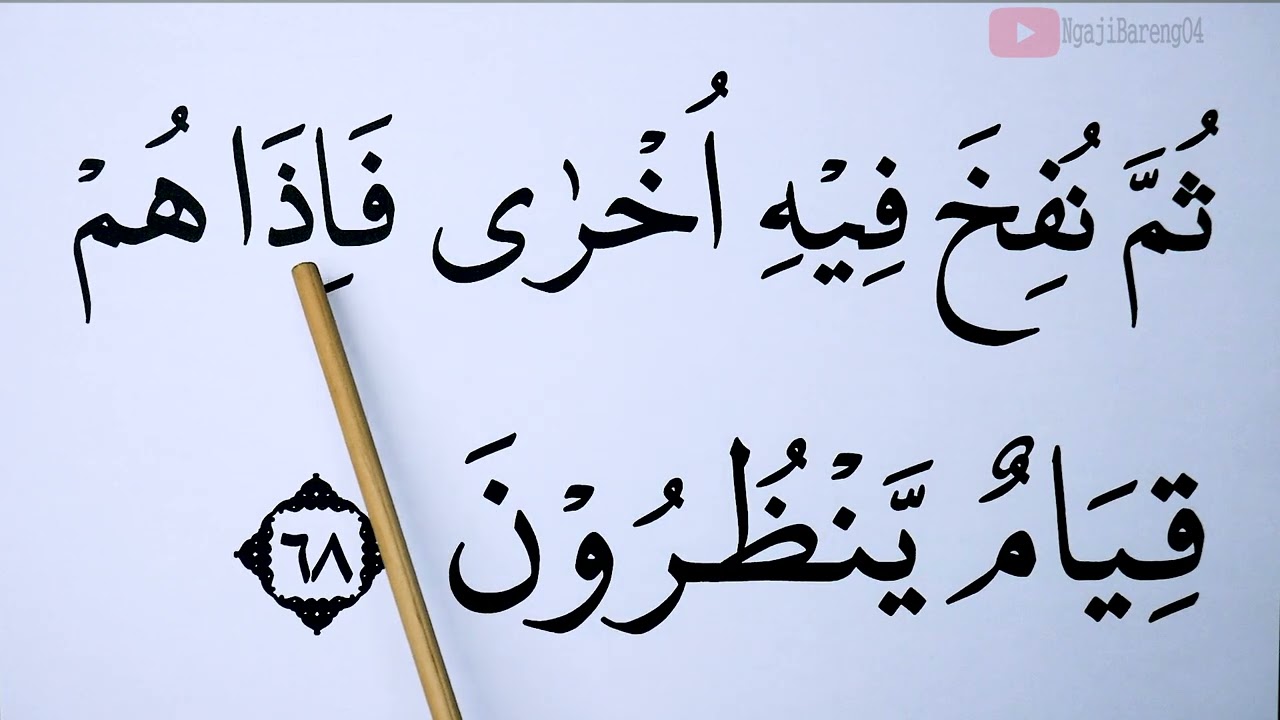 NgajiBareng04
ثُمَّ نُفِخَ فِيْهِ اُخْرٰى فَاِذَا هُمْ
قِيَامٌ يَّنْظُرُوْنَ ٦٨